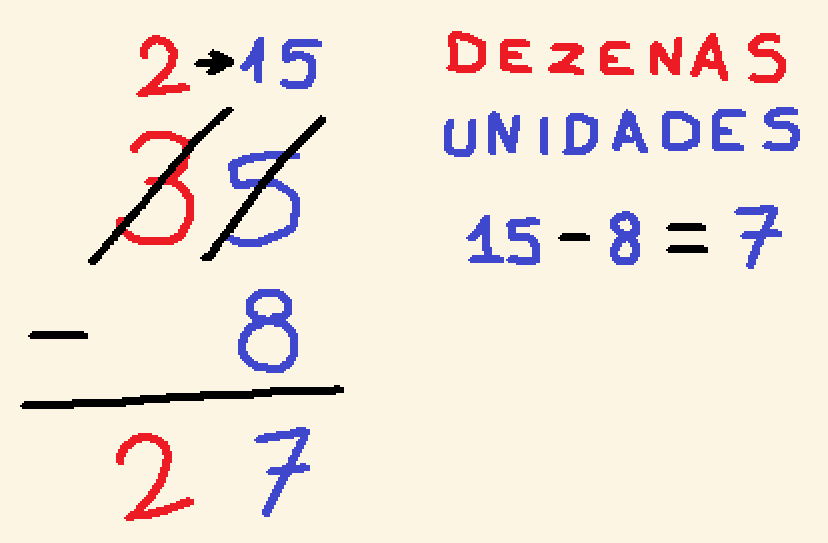 2→15
35
- 8
27
DEZENAS
UNIDADES
15-8=7